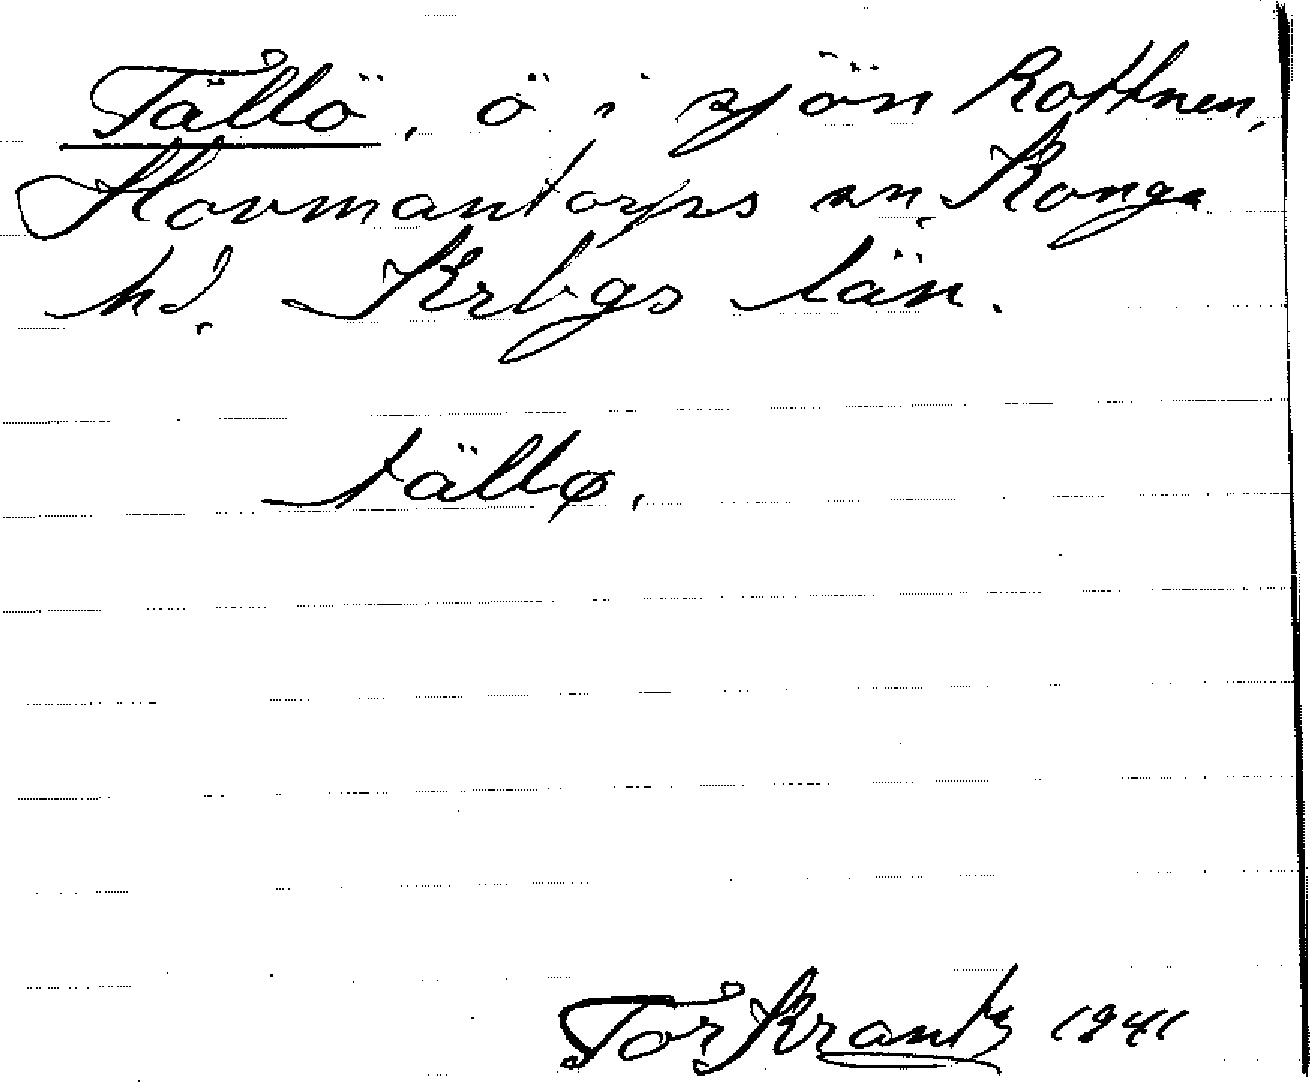 Tällö, ö i sjön Rottnen,
Hovmantorps sn, Konga
hd. Krbgs län.
tällø.
Tor Krantz 1941